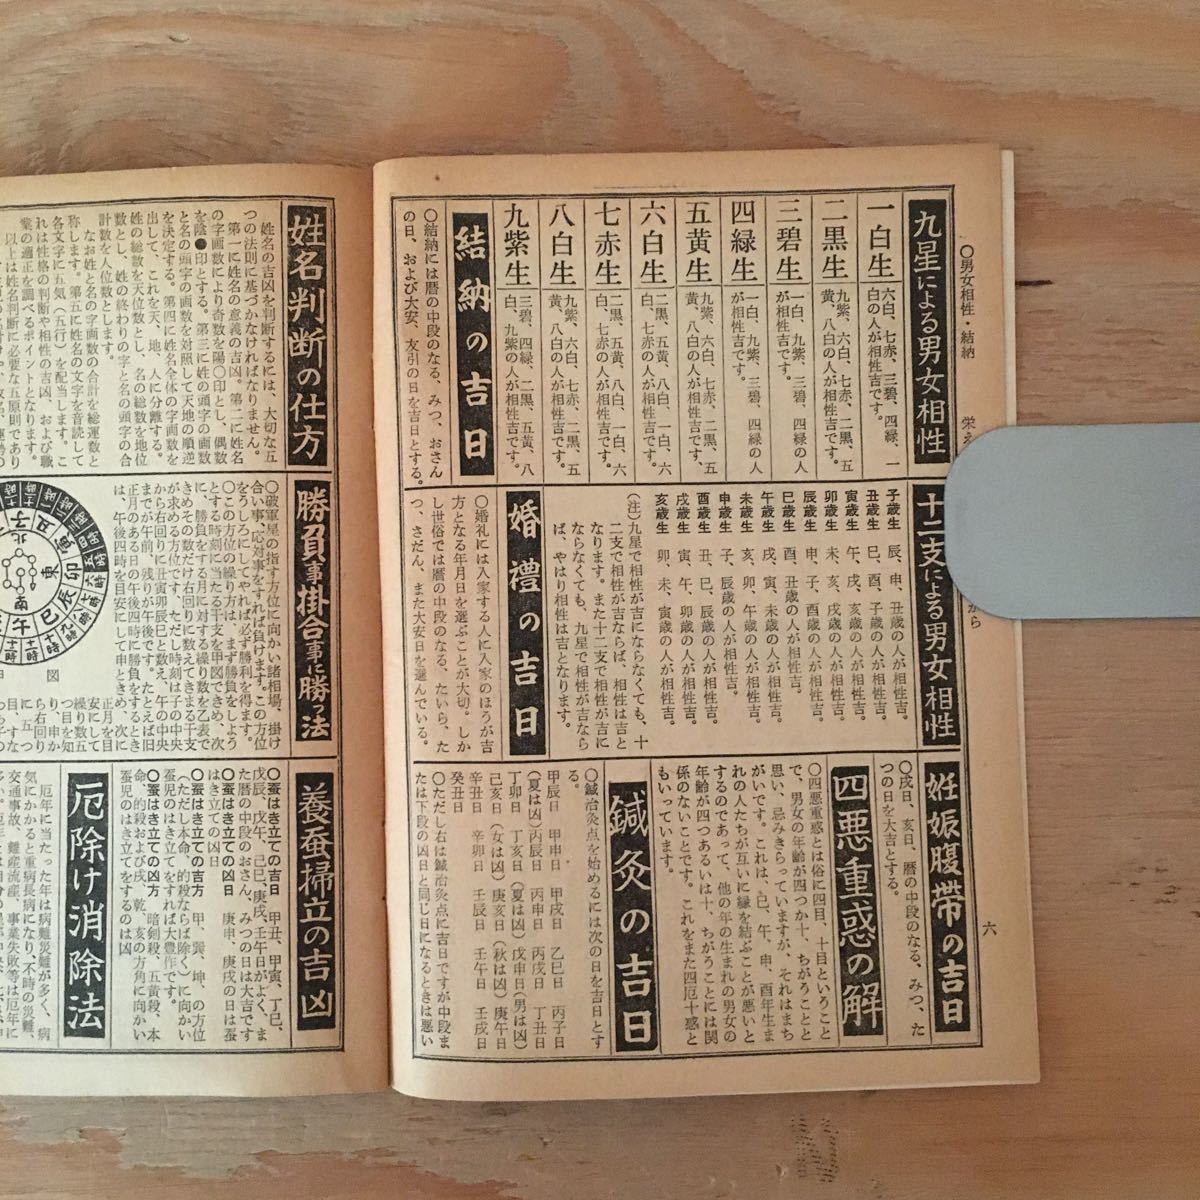 ○男女相性・結納
栄え
から
六
九星による男女相性
一白生
六白、七赤、三碧、四緑、一
白の人が相性吉です。
二黒生
九紫、六白、七赤、二黒、五
黄、八白の人が相性吉です。
三碧生
一白、九紫、三碧、四緑の人
が相性吉です。
四緑生
一白、九紫、三碧、四緑の人
が相性吉です。
五黄生
九紫、六白、七赤、二黒、五
黄、八白の人が相性吉です。
六白生
二黒、五黄、八白、一白、六
白、七赤の人が相性吉です。
七赤生
二黒、五黄、八白、一白、六
白、七赤の人が相性吉です。
八白生
九紫、六白、七赤、二黒、五
黄、八白の人が相性吉です。
九紫生
三碧、四緑、二黒、五黄、八
白、九紫の人が相性吉です。
結納の吉日
○結納には暦の中段のなる、みつ、おさん
の日、および大安、友引の日を吉日とする。
十二支による男女相性
子歳生 辰、申、丑歳の人が相性吉。
丑歳生 巳、酉、子歳の人が相性吉。
寅歳生 午、戌、亥歳の人が相性吉。
卯歳生 未、亥、戌歳の人が相性吉。
辰歳生 申、子、酉歳の人が相性吉。
巳歳生 酉、丑歳の人が相性吉。
午歳生 戌、寅、未歳の人が相性吉。
未歳生 亥、卯、午歳の人が相性吉。
申歳生 子、辰歳の人が相性吉。
酉歳生 丑、巳、辰歳の人が相性吉。
戌歳生 寅、午、卯歳の人が相性吉。
亥歳生 卯、未、寅歳の人が相性吉。
(注)九星で相性が吉にならなくても、十
二支で相性が吉ならば、相性は吉と
なります。また十二支で相性が吉に
ならなくても、九星で相性が吉なら
ば、やはり相性は吉となります。
婚禮の吉日
○婚礼には入家する人に入家のほうが吉
方となる年月日を選ぶことが大切。しか
し世俗では暦の中段のなる、たいら、た
つ、さだん、また大安日を選んでいる。
姙娠腹帯の吉日
○戌日、亥日、暦の中段のなる、みつ、た
つの日を大吉とする。
四悪重惑の解
○四悪重惑とは俗に四目、十目ということ
で、男女の年齢が四つか十、ちがうことを
思い、忌みきらっていますが、それはまち
がいです。これは、巳、午、申、酉年生ま
れの人たちが互いに縁を結ぶことが悪いと
するのであって、他の年の生まれの男女の
年齢が四つあるいは十、ちがうことには関
係のないことです。これをまた四厄十惑と
もいっています。
鍼灸の吉日
○鍼治灸点を始めるには次の日を吉日とす
る。
甲辰日 甲申日 甲戌日 乙巳日 丙子日
(夏は凶)丙辰日 丙申日 丙戌日 丁丑日
丁卯日 丁亥日(夏は凶)戊申日(男は凶)
己亥日(女は凶)庚亥日(秋は凶)庚午日
辛丑日 辛卯日 壬辰日 壬午日 壬戌日
癸丑日
○ただし右は鍼治灸点に吉日ですが中段ま
たは下段の凶日と同じ日になるときは悪い
姓名判断の仕方
姓名の吉凶を判断するには、大切な五
つの法則に基づかなければなりません。
第一に姓名の意義の吉凶。第二に姓名
の字画数により奇数を陽○印とし、偶数
を陰●印とする。第三に姓の頭字の画数
と名の頭字の画数を対照して天地の順逆
を決定する。第四に姓名全体の字画数を
出して、これを天、地、人に分離する。
姓の総数を天位数とし、名の総数を地位
数とし、姓の終わりの字と名の頭字の合
計数を人位数とします。
なお姓と名の字画数の合計を総運数と
称します。第五に姓名の文字を音読して
各文字に五気(五行)を配当します。こ
れは性格の判断や相性の吉凶、および職
業の適正を調べるポイントとなります。
以上は姓名判断に必要な五原則であり
勝負事掛合事に勝つ法
○破軍星の指す方位に向かい諸相場、掛け
合い事、応対事をすれば負けます。この方位
をうしろにしてやれば必ず勝利を得ます。
○この方位の繰り方は、まず勝負をしよう
とする時刻に当たる干支を甲図できめ、次
に、勝負をする月に対する繰り数を乙表で
きめその数だけ右回りに数えてきまる干支
が求める方位です。ただし時刻は子の中央
から右回りに丑寅卯辰巳と数え、午の中央
までが午前、残りが午後です。たとえば旧
正月のある日の午後四時に勝負をするとき
は、午後四時を目安にして申ときめ、次に
図
北
東
南
子
丑
寅
卯
辰
巳
午
正月を目
安にして
繰り数五
つ目を知
り、申か
ら右回り
に五つ
養蚕掃立の吉凶
○蚕はき立ての吉日 甲丑、甲寅、丁巳、
戊辰、戊午、己巳、庚戌、壬午日がよく、ま
た暦の中段のおさん、みつの日は大吉です
○蚕はき立ての凶日 庚申、庚戌の日は蚕
はき立ての凶日
○蚕はき立ての吉方 甲、巽、坤、の方位
(ただし本命、的殺ならば除く)に向かい
蚕児のはき立てをすれば大豊作です。
○蚕はき立ての凶方 暗剣殺、五黄殺、本
命、的殺および戌、乾、亥の方角に向かい
蚕児のはき立てをするのは凶
厄除け消除法
厄年に当たった年は病難災難が多く、病
気にかかると重病長病になり、不時の災難、
交通事故、難産流産、事業失敗等は厄年に